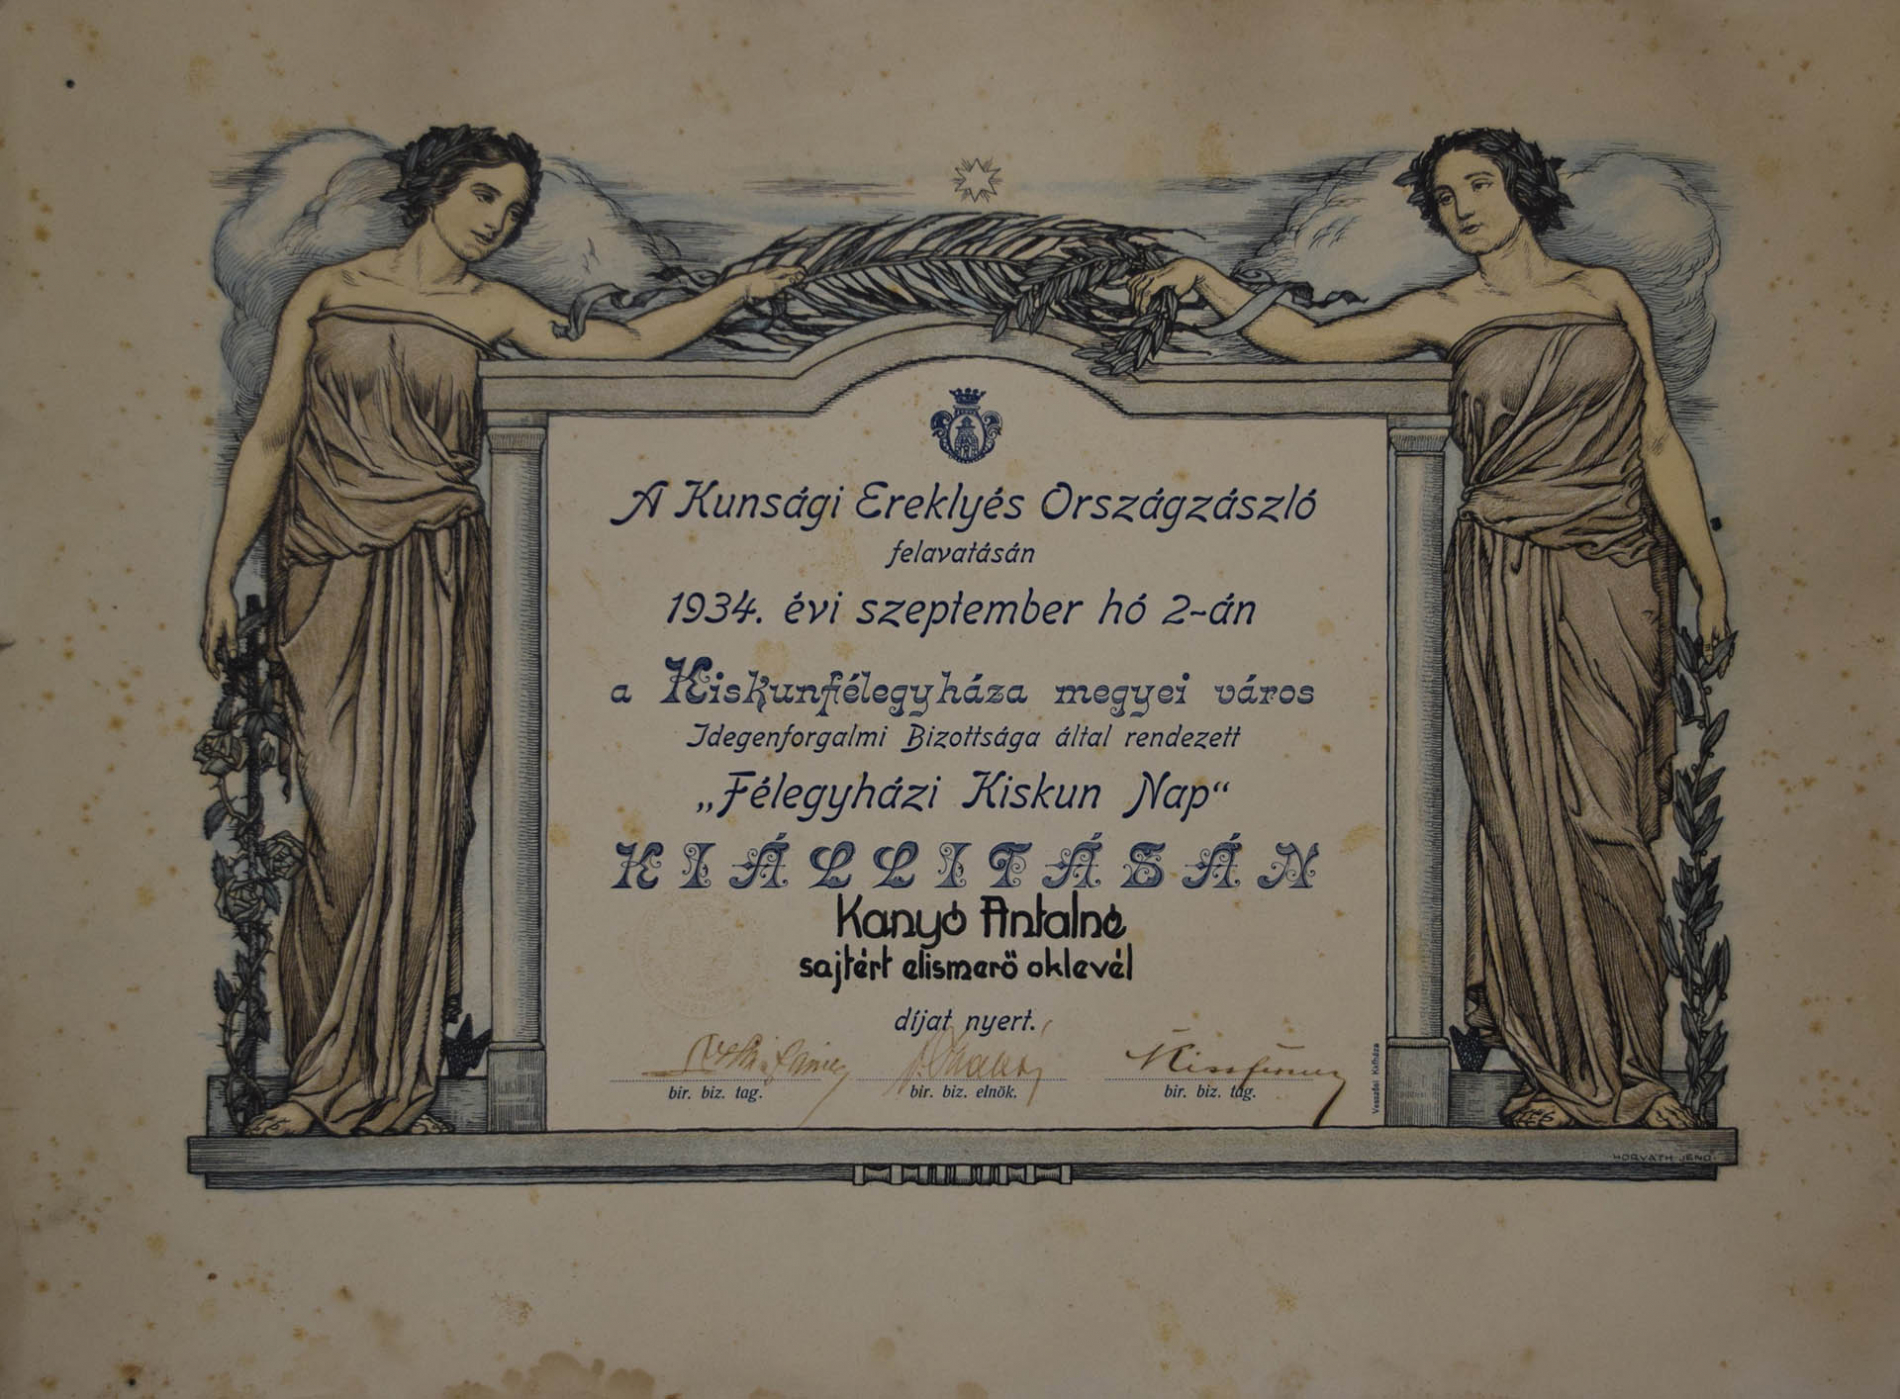 A Kunsági Ereklyés Országzászló
felavatásán
1934. évi szeptember hó 2-án
a Kiskunfélegyháza megyei város
Idegenforgalmi Bizottsága által rendezett
„Félegyházi Kiskun Nap“
KIÁLLITÁSÁN
Kanyó Antalné
sajtért elismerő oklevél
díjat nyert.
bir. biz. tag.
bir. biz. elnök.
bir. biz. tag.
HORVÁTH JENŐ.